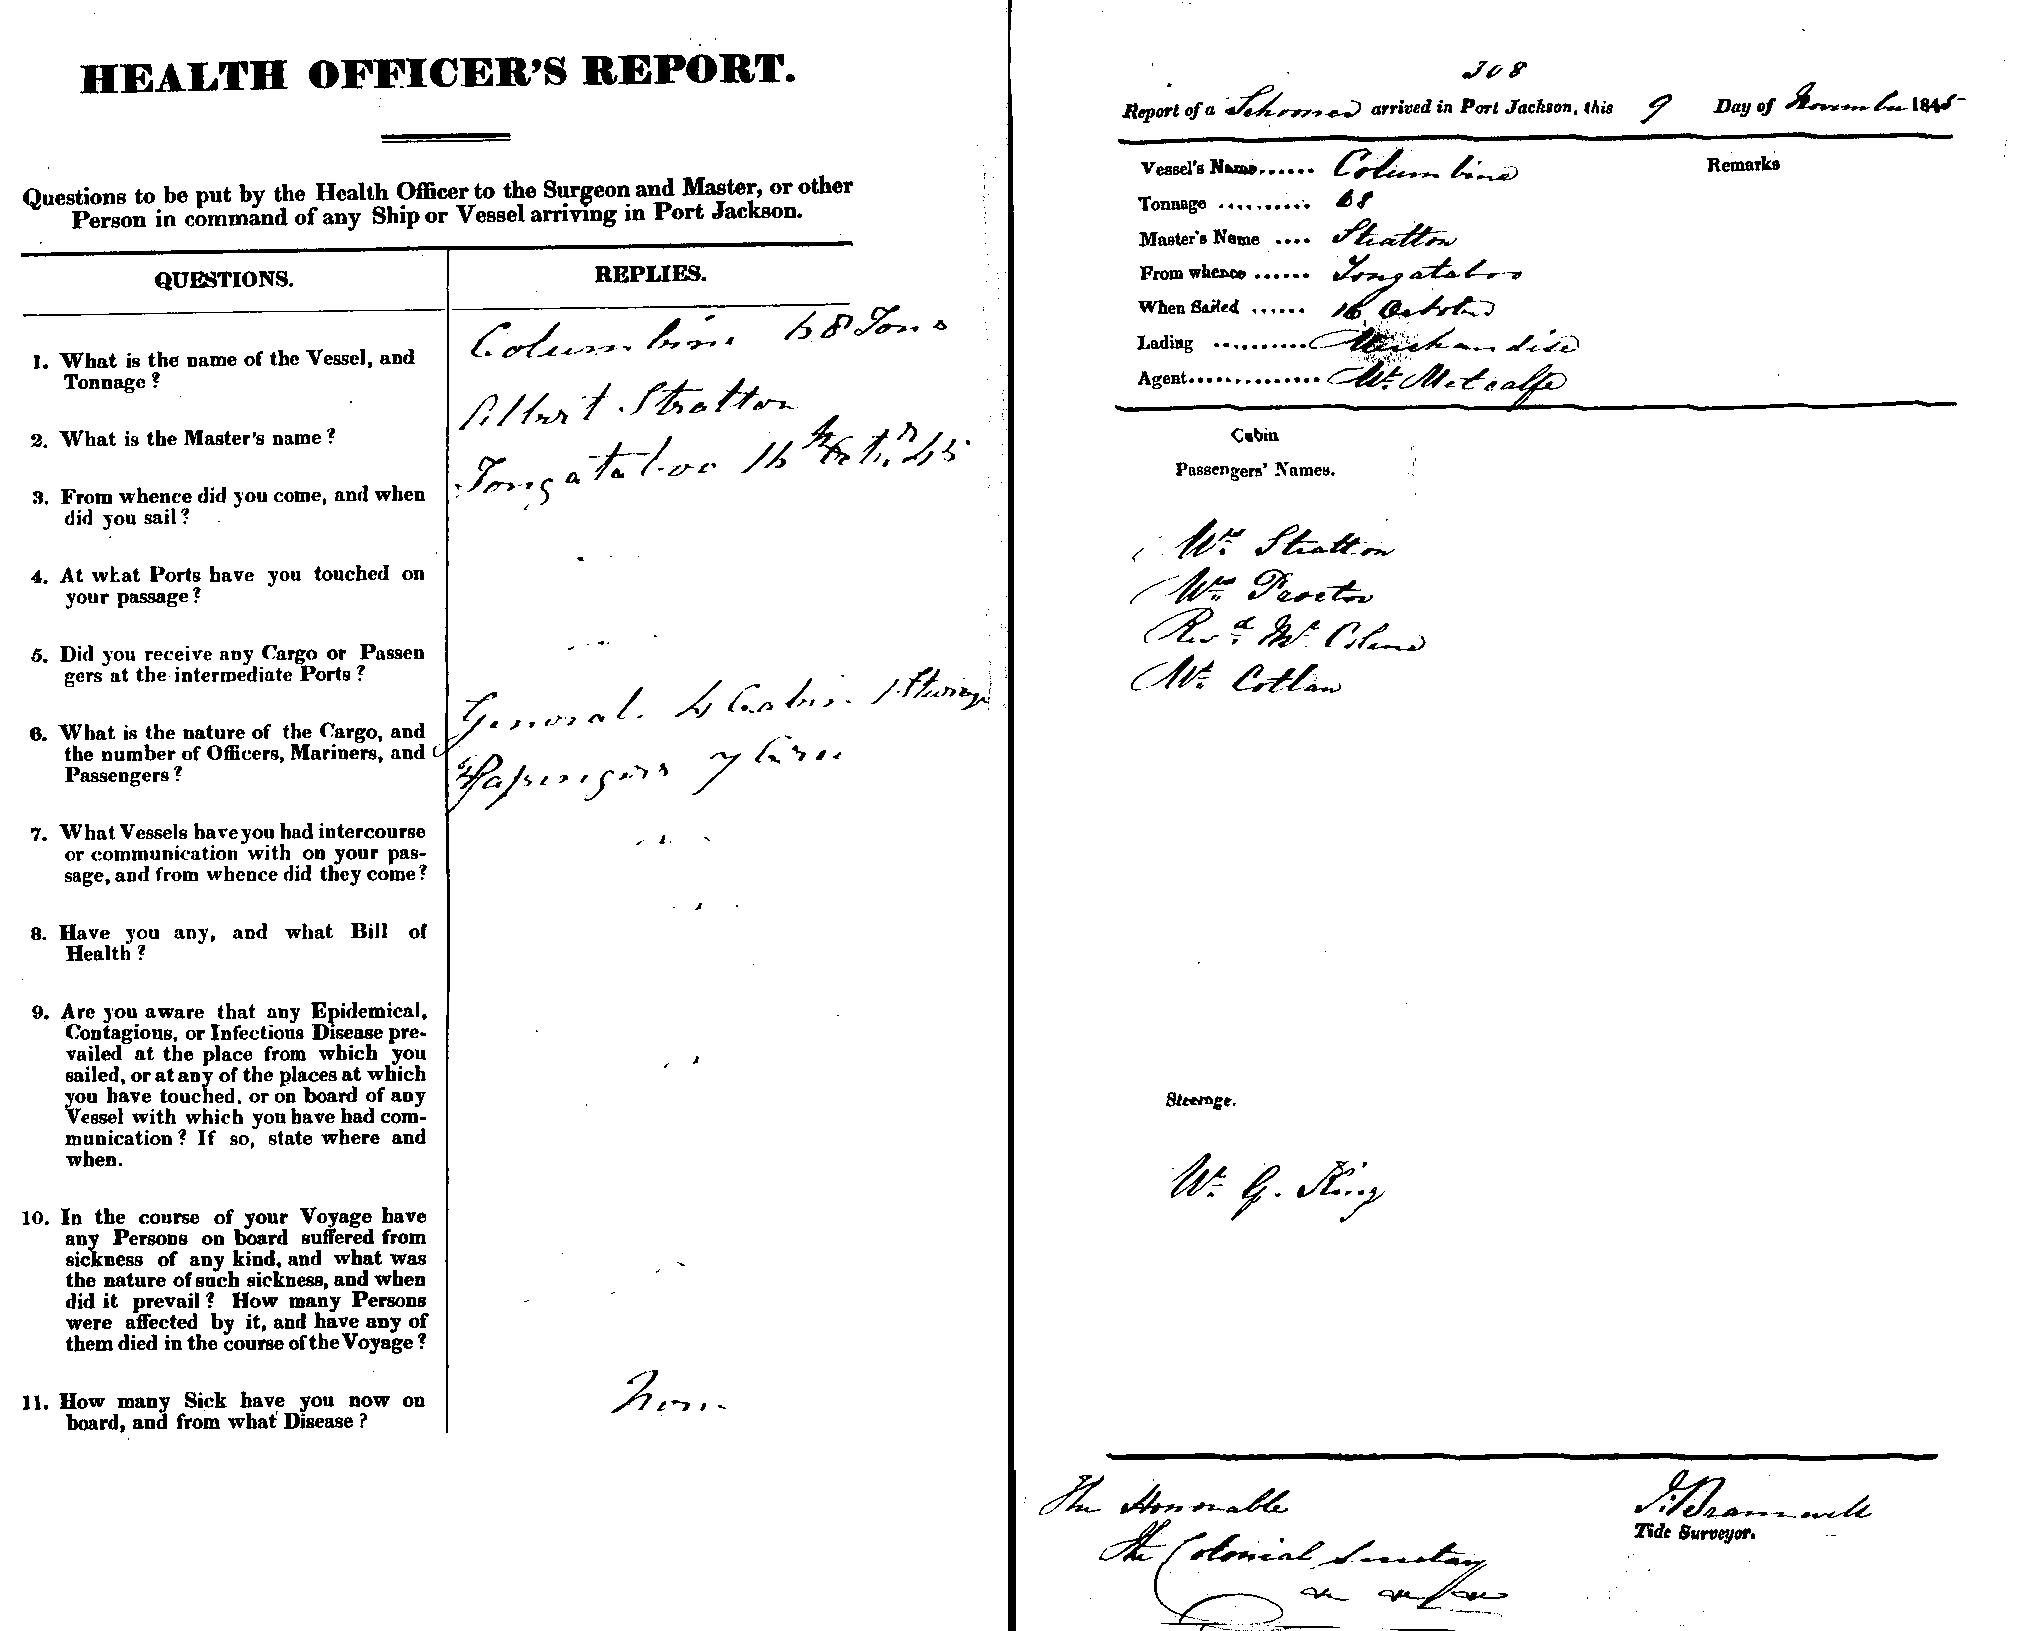 HEALTH OFFICER'S REPORT.
Questions to be put by the Health Officer to the Surgeon and Master, or other
Person in command of any Ship or Vessel arriving in Port Jackson.
QUESTIONS.
REPLIES.
1. What is the name of the Vessel, and
Tonnage?
Columbine 68 Tons
2. What is the Master's name?
Albert Stratton
3. From whence did you come, and when
did you sail?
Tongataboo 16th Octr 45
4. At what Ports have you touched on
your passage?
5. Did you receive any Cargo or Passen
gers at the intermediate Ports?
6. What is the nature of the Cargo, and
the number of Officers, Mariners, and
Passengers?
General. 4 Cabin. 1 Steerage
Passengers 7 Crew
7. What Vessels have you had intercourse
or communication with on your pas-
sage, and from whence did they come?
8. Have you any, and what Bill of
Health?
9. Are you aware that any Epidemical,
Contagious, or Infectious Disease pre-
vailed at the place from which you
sailed, or at any of the places at which
you have touched, or on board of any
Vessel with which you have had com-
munication? If so, state where and
when.
10. In the course of your Voyage have
any Persons on board suffered from
sickness of any kind, and what was
the nature of such sickness, and when
did it prevail? How many Persons
were affected by it, and have any of
them died in the course of the Voyage?
11. How many Sick have you now on
board, and from what Disease?
None
308
Report of a Schooner arrived in Port Jackson, this 9 Day of November 1845
Vessel's Name...... Columbine
Remarks
Tonnage .......... 68
Master's Name .... Stratton
From whence ...... Tongataboo
When Sailed ...... 16 October
Lading .......... Merchandise
Agent.............. Mr. Metcalfe
Cabin
Passengers' Names.
Mrs. Stratton
Proctor
Revd. Mr.
Mr.
Steerage.
Mr. G. King
The Honorable
The Colonial Secretary
J. Bramwell
Tide Surveyor.